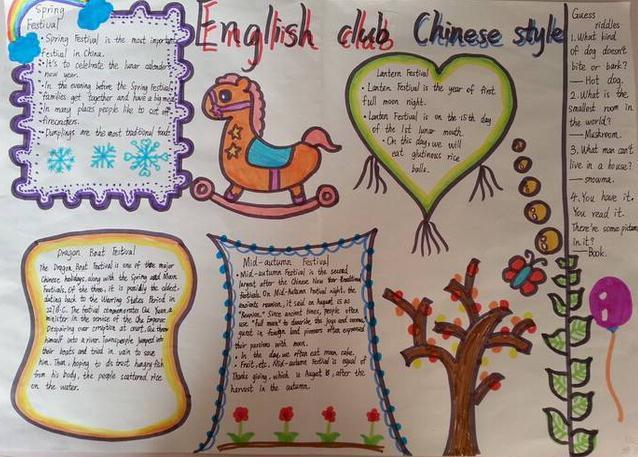 English club Chinese style
Spring
Festival
• Spring Festival is the most important
Festival in China.
• It's to celebrate the lunar calendar's
new year.
• In the evening before the Spring Festival
families get together and have a big meal.
• In many places people like to set off
firecrackers.
• Dumplings are the most traditional food.
Lantern Festival
• Lantern Festival is the year of first
full moon night.
• Lantern Festival is on the 15th day
of the 1st lunar mouth.
• On this day, we will
eat glutinous rice
balls.
Guess
riddles
1. What kind
of dog doesn't
bite or bark?
— Hot dog.
2. What is the
smallest room in
the world?
— Mushroom.
3. What man can't
live in a house?
— snowma.
4. You have it.
You read it.
There're some pictures
in it?
— Book.
Dragon Boat Festival
The Dragon Boat Festival is one of three major
Chinese holidays, along with the Spring and Moon
Festivals. Of the three, it is possibly the oldest
dating back to the Warring States Period in
227 B.C. The festival commemorates Qu Yuan, a
minister in the service of the Chu Emperor.
Despairing over corruption at court, Qu threw
himself into a river. Townspeople jumped into
their boats and tried in vain to save
him. Then, hoping to distract hungry fish
from his body, the people scattered rice
on the water.
Mid-autumn Festival
• Mid-autumn Festival is the second
largest after the Chinese New Year
festivals. On Mid-Autumn Festival night the
ancients reunion, it said on August 15 as
"Reunion." Since ancient times, people often
use "full moon" to describe the joys and
guest in foreign land
their with moon.
• In the day, we often eat moon cake,
• Fruit, etc. Mid-autumn Festival is equal of
Thanks giving, which is August 15, after the
harvest in the autumn.